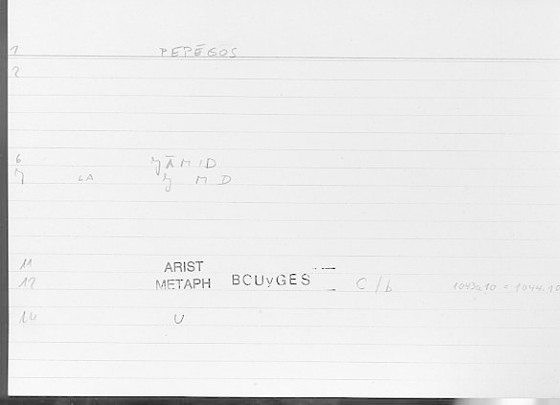 1 PEPĒGOS
2
6 ɏĀMID
7 LA ɏ M D
11 ARIST
12 METAPH BCUyGES C/b 1043a10 = 1044.10
14 U